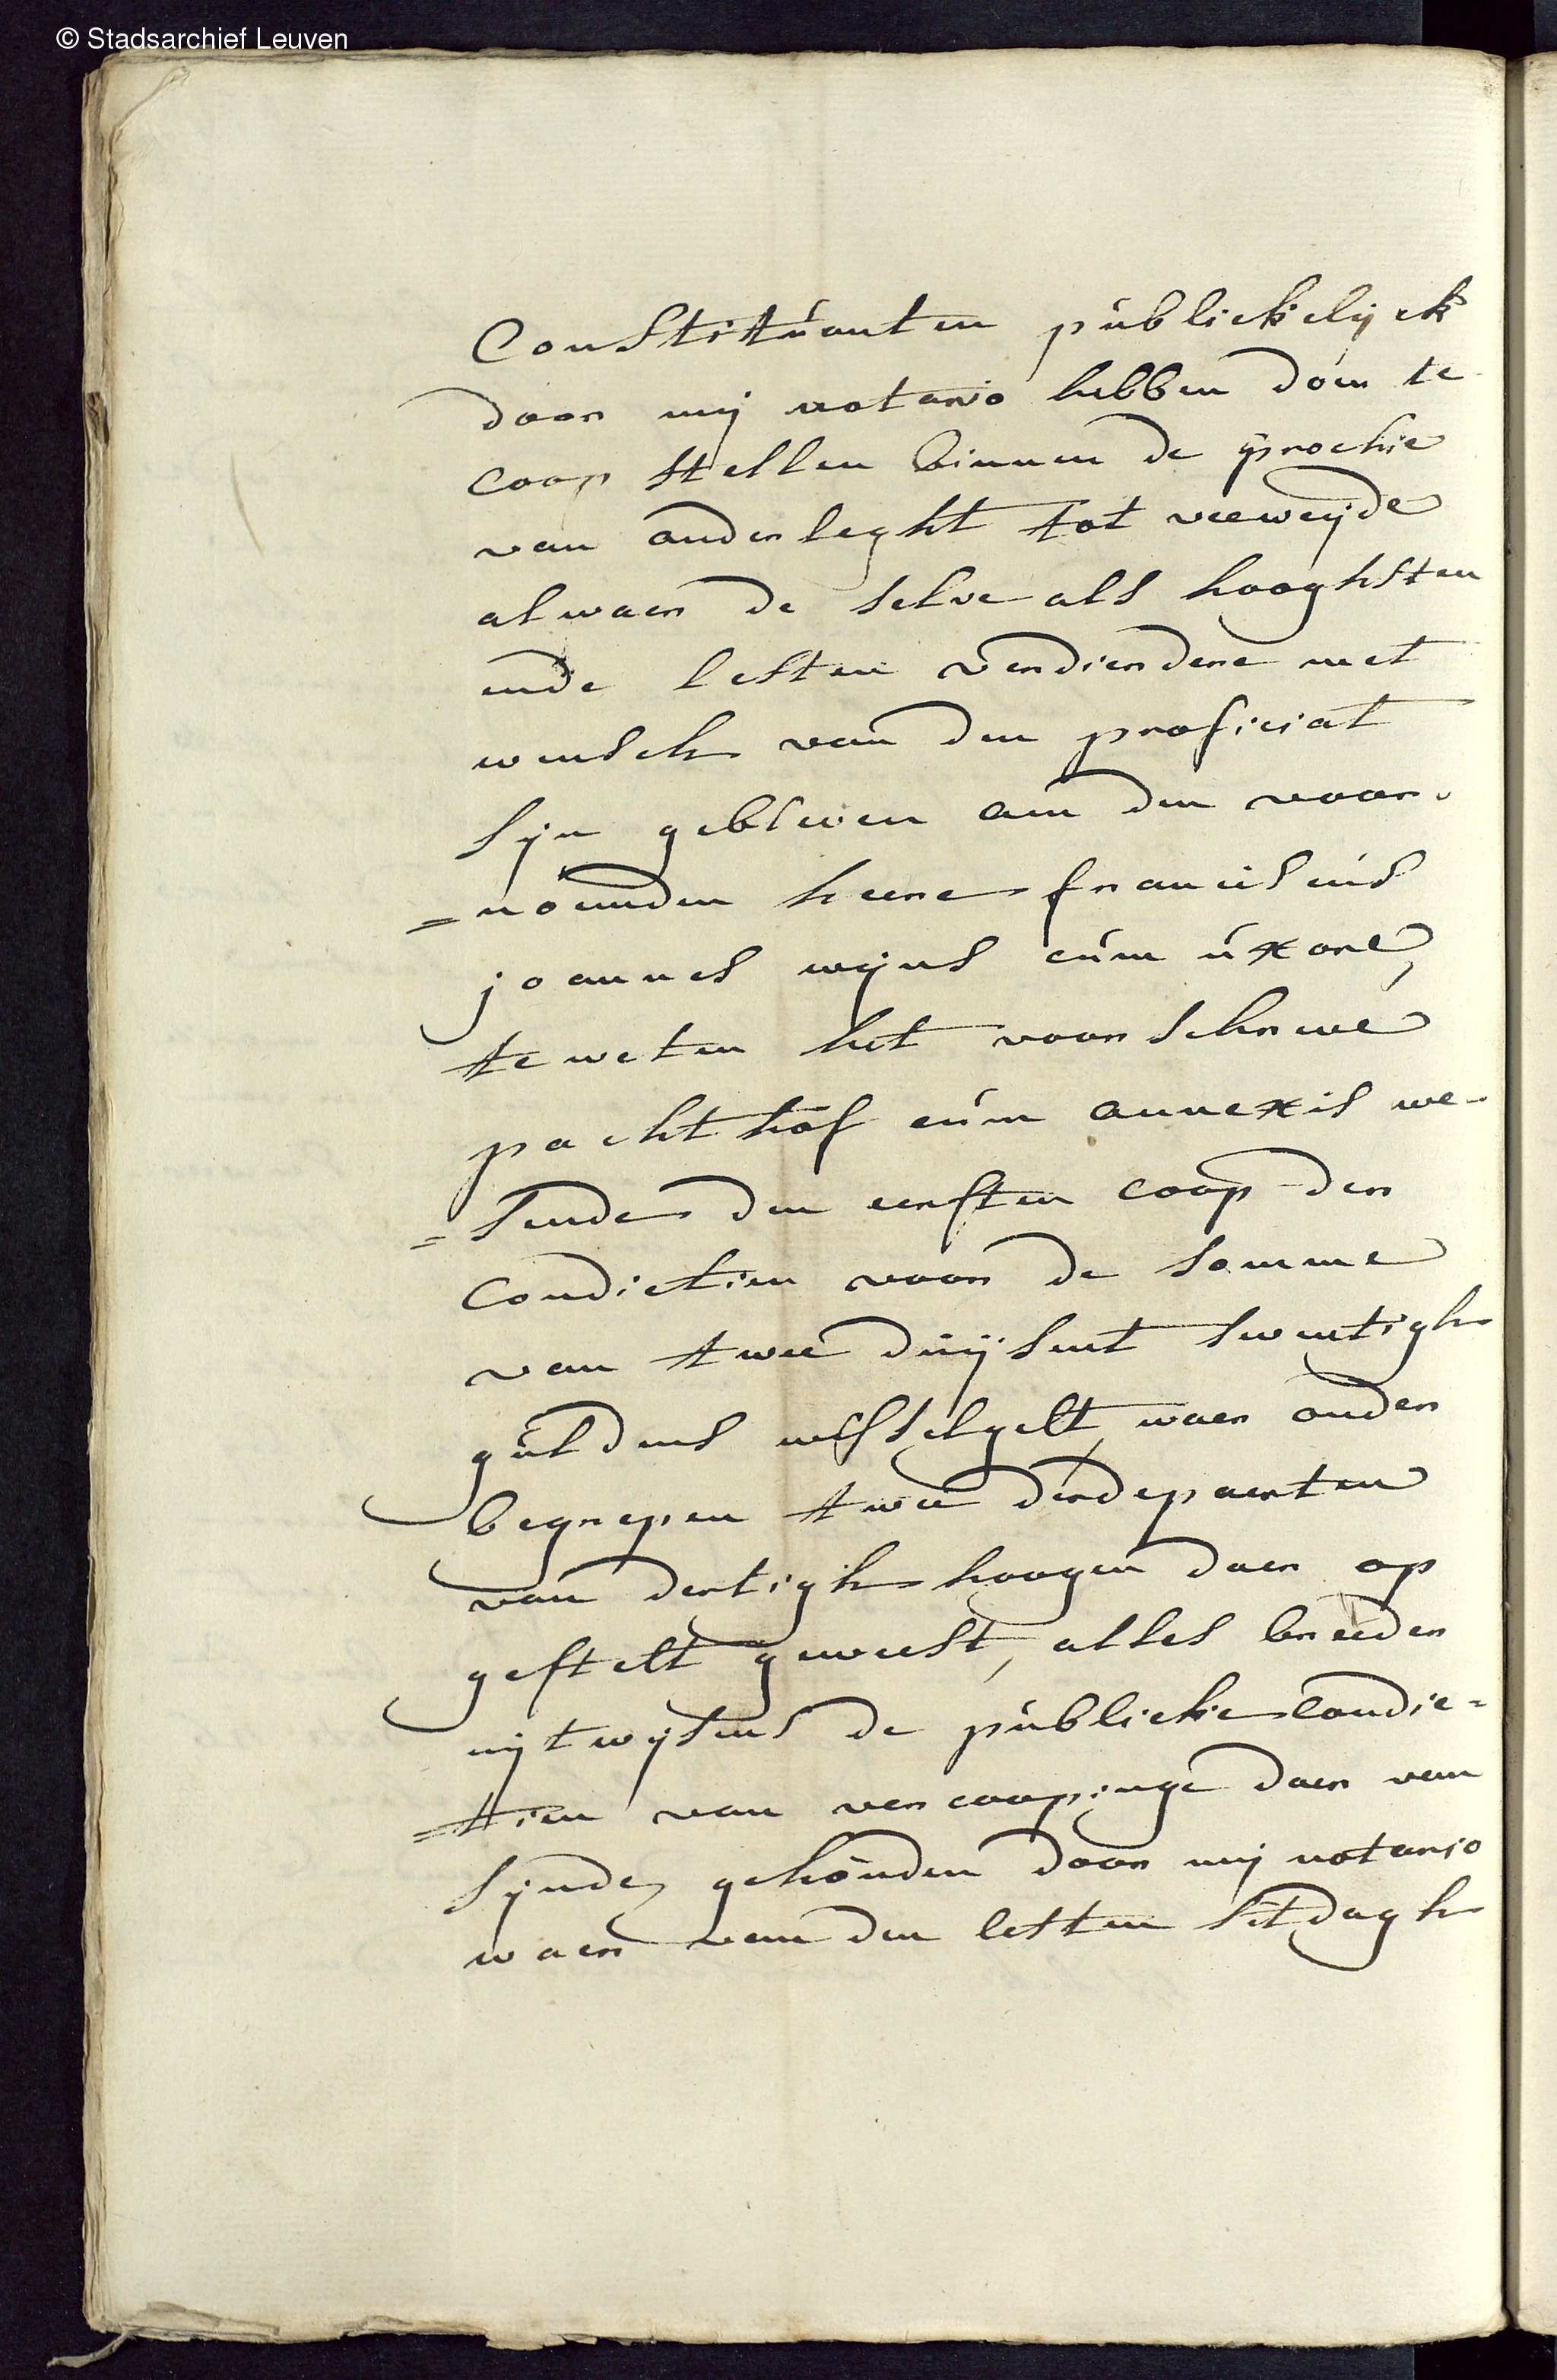 © Stadsarchief Leuven
Constitúanten públickelijck
door mij notario hebben doen te
coop stellen binnen de prochie
van anderleght tot veeweijde
alwaer de selve als hooghsten
ende lesten verdierdere met
wensch van den proficiat
sijn gebleven aen den voor-
=nomden heere franciscús
joannes wijns cúm úxore,
te weten het voorschreve
pachthof cúm annexis we-
=sende den eersten coop der
condictien voor de somme
van twee dúijsent twentigh
gúldens wisselgelt, waer onder
begrepen twee derdepaerten
van dertigh hoogen daer op
gestelt geweest, alles breeder
uijtwijsens de públicke condic=
=tien van vercoopinge daer van
sijnde gehouden door mij notario
waer van den lesten sitdagh